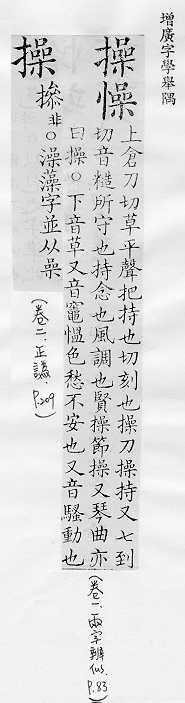 增廣字學舉隅
操懆
上倉刀切草平聲把持也切刻也操刀操持又七到
切音糙所守也持念也風調也賢操節操又琴曲亦
曰操○下音草又音竈慍色愁不安也又音騷動也
(卷一、兩字辨似、P.83)
操
摻非○澡藻字並从喿
(卷二、正譌、P.209)